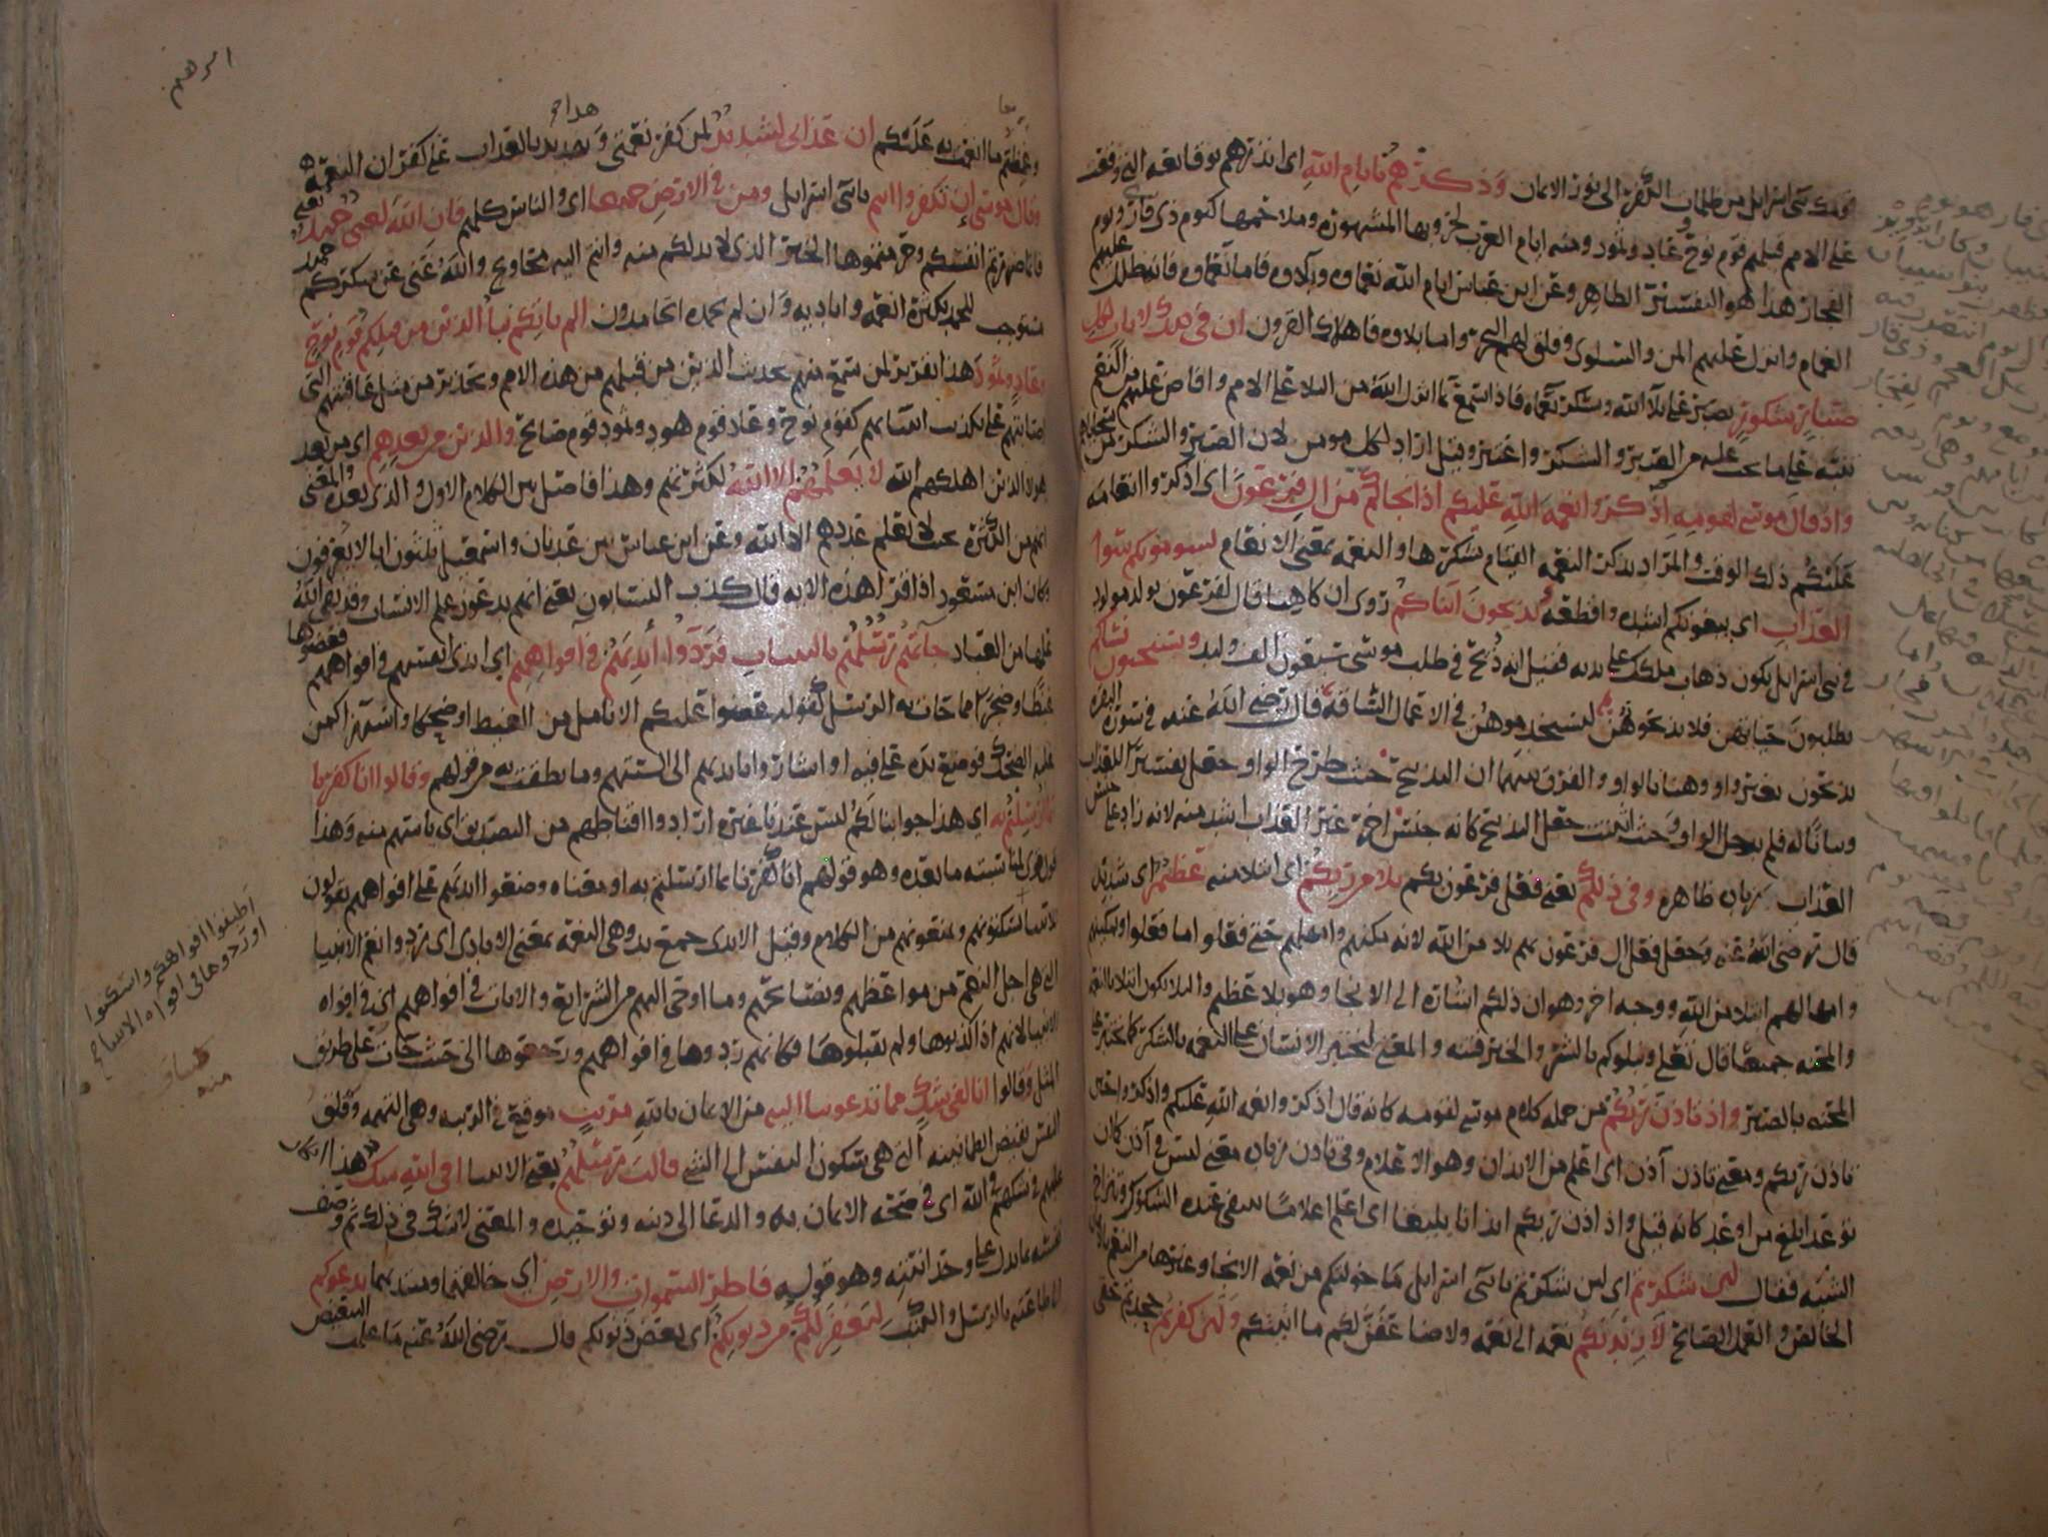 قومك بني اسرائيل من ظلمات الكفر الى نور الايمان وذكرهم بايام الله اي انذرهم بوقائعه التي وقعت
على الامم قبلهم قوم نوح وعاد وثمود ومنه ايام العرب لحروبها المشهورة وملاحمها كيوم ذي قار ويوم
الفجار هذا هو التفسير الظاهر وعن ابن عباس ايام الله نعماوه وبلاوه فاما نعماوه فانه ظلل عليهم
الغمام وانزل عليهم المن والسلوى وفلق لهم البحر واما بلاوه فاهلاك القرون ان في ذلك لايات لكل
صبار شكور يصبر على بلا الله ويشكر نعماه فاذا سمع بما انزل الله من البلا على الامم وافاض عليهم من النعم
تنبه على ما يجب عليه من الصبر والشكر واعتبر وقيل اراد لكل مومن لان الصبر والشكر من سجاياهم
واذ قال موسى لقومه اذكروا نعمة الله عليكم اذ انجاكم من ال فرعون اي اذكروا انعامه
عليكم ذلك الوقت والمراد بذكر النعمة القيام بشكرها والنعمة بمعنى الانعام يسومونكم سوا
العذاب اي يبغونكم اشده وافظعه يذبحون ابناكم روي ان كاهنا قال لفرعون يولد مولود
في بني اسرائيل يكون ذهاب ملكك على يديه فقيل انه ذبح في طلب موسى سبعون الف وليد ويستحيون نساكم
يطلبون حياتهن فلا يذبحوهن ليستخدموهن في الاعمال الشاقة قال رضي الله عنه في سورة البقرة
يذبحون بغير واو وهنا بالواو والفرق بينهما ان التذبيح حيث طرح الواو جعل تفسيرا للعذاب
وبيانا له فلم يدخل الواو وحيث اثبت جعل التذبيح كانه جنس اخر غير العذاب اشد منه لانه زاد على جنس
العذاب زيادة ظاهرة وفي ذلكم يعني فعل فرعون بكم بلا من ربكم اي ابتلا منه عظيم اي شديد
قال رضي الله عنه وجعل فعل ال فرعون بهم بلا من الله لانه مكنهم وامهلهم حتى فعلوا ما فعلوا وتمكينهم
وامهالهم ابتلا من الله ووجه اخر وهو ان ذلكم اشارة الى الانجا وهو بلا عظيم والبلا يكون ابتلا بالنعمة
والمحنة جميعا قال تعالى ونبلوكم بالشر والخير فتنة والمعنى ليختبر الانسان على النعمة بالشكر كما يختبر على
المحنة بالصبر واذ تاذن ربكم من جملة كلام موسى لقومه كانه قال اذكروا نعمة الله عليكم واذكروا حين
تاذن ربكم ومعنى تاذن آذن اي اعلم من الايذان وهو الاعلام وفي تاذن زيادة معنى ليس في آذن كان
توعد ابلغ من اوعد كانه قيل واذ آذن ربكم ايذانا بليغا اي اعلم اعلاما ينفي عنده الشكوك وتنزاح
الشبه فقال لين شكرتم اي لين شكرتم يا بني اسرايل ما خولتكم من نعمة الانجا وغيرها من النعم بالايمان
الخالص والعمل الصالح لازيدنكم نعمة الى نعمة ولاضاعفن لكم ما اتيتكم ولين كفرتم جحدتم حقي
وغمطتم ما انعمت به عليكم ان عذابي لشديد لمن كفر نعمتي وهذا تهديد بالعذاب على كفران النعمة
وقال موسى ان تكفروا انتم يا بني اسرايل ومن في الارض جميعا اي والناس كلهم فان الله لغني حميد يعني
فانما ضررتم انفسكم وحرمتموها الخير الذي لا بد لكم منه وانتم اليه محاويج والله غني عن شكركم حميد
مستوجب للحمد بكثرة انعمه واياديه وان لم يحمده الحامدون الم ياتكم نبا الذين من قبلكم قوم نوح
وعاد وثمود هذا تقرير لمن سمع منهم بحديث الذين من قبلهم من هذه الامم وتحذير من مثل عاقبتهم التي
اصابتهم على تكذيب انبيائهم كقوم نوح وعاد قوم هود وثمود قوم صالح والذين من بعدهم اي من بعد
هولا الذين اهلكهم الله لا يعلمهم الا الله لكثرتهم وهذا فاصل بين الكلام الاول والذي بعده والمعنى
انهم من الكثرة بحيث لا يعلم عددهم الا الله وعن ابن عباس بين عدنان واسمعيل ثلثون ابا لا يعرفون
وكان ابن مسعود اذا قرا هذه الاية قال كذب النسابون يعني انهم يدعون علم الانساب وقد نفى الله
علمها من العباد جاءتهم رسلهم بالبينات فردوا ايديهم في افواههم اي ايدي انفسهم في افواههم فعضوها
غيظا وضجرا مما جات به الرسل كقوله عضوا عليكم الانامل من الغيظ او ضحكا واستهزا كمن
غلبه الضحك فوضع يده على فيه او اشاروا بايديهم الى السنتهم وما نطقت به من قولهم وقالوا انا كفرنا
بما ارسلتم به اي هذا جوابنا لكم ليس عندنا غيره ارادوا اقناطهم من التصديق اي ياسهم منه وهذا
ما بعده وهو قولهم انا كفرنا بما ارسلتم به او معناه وضعوا ايديهم على افواههم يقولون
من الكلام وقيل الايدي جمع يد وهي النعمة بمعنى الايادي اي ردوا نعم الانبيا
التي هي اجل النعم من مواعظهم ونصائحهم وما اوحي اليهم من الشرايع والايات في افواههم اي في افواه
الانبيا لانهم اذا كذبوها ولم يقبلوها فكانهم ردوها في افواههم ورجعوها الى حيث جات على طريق
المثل وقالوا انا لفي شك مما تدعوننا اليه من الايمان بالله مريب موقع في الريبة وهي التهمة وقلق
النفس نقيض الطمانينة التي هي سكون النفس الى الشي قالت رسلهم يعني الانبيا افي الله شك هذا انكار
عليهم في شكهم في الله اي في صحة الايمان به والدعا الى دينه وتوحيده والمعنى لا شك في ذلك ثم وصف
نفسه بما يدل على وحدانيته وهو قوله فاطر السموات والارض اي خالقهما ومبديهما يدعوكم
الى طاعته بالرسل والكتب ليغفر لكم من ذنوبكم اي بعض ذنوبكم قال رضي الله عنه ما علمت التبعيض
اطبقوا افواهكم واسكتوا
او ردوها في افواه الانبياء
كشاف
منه